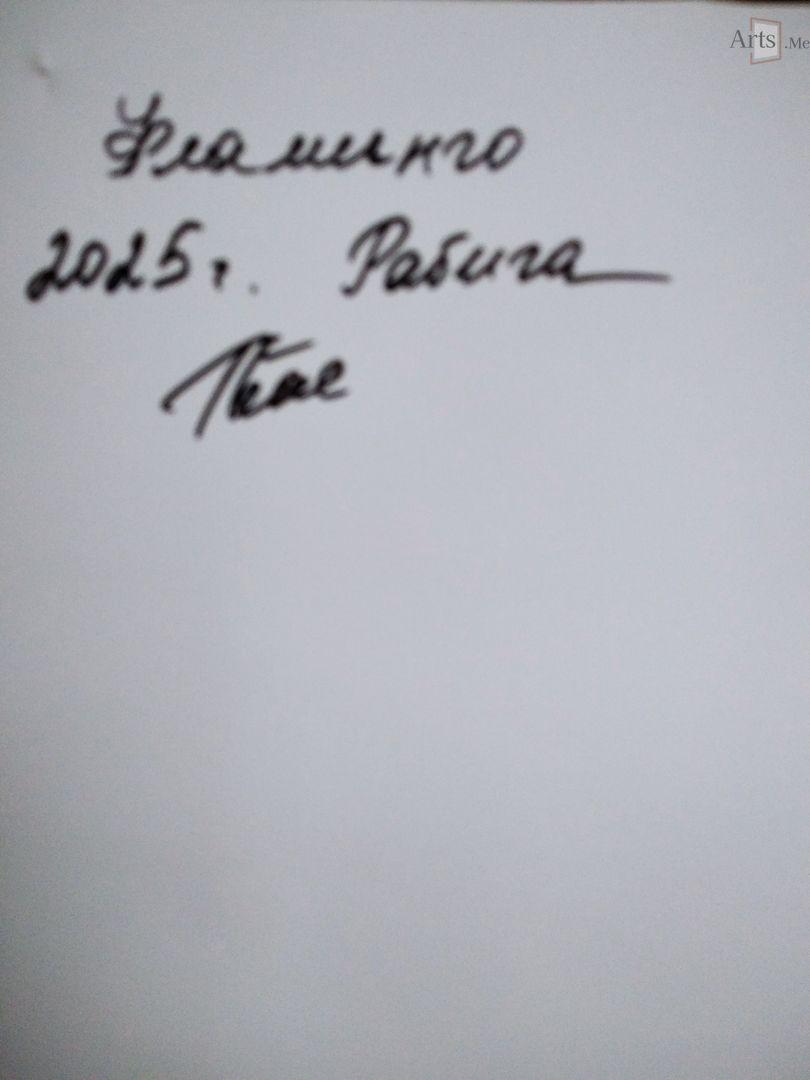 Arts.Me
Фламинго
2025 г. Рабига